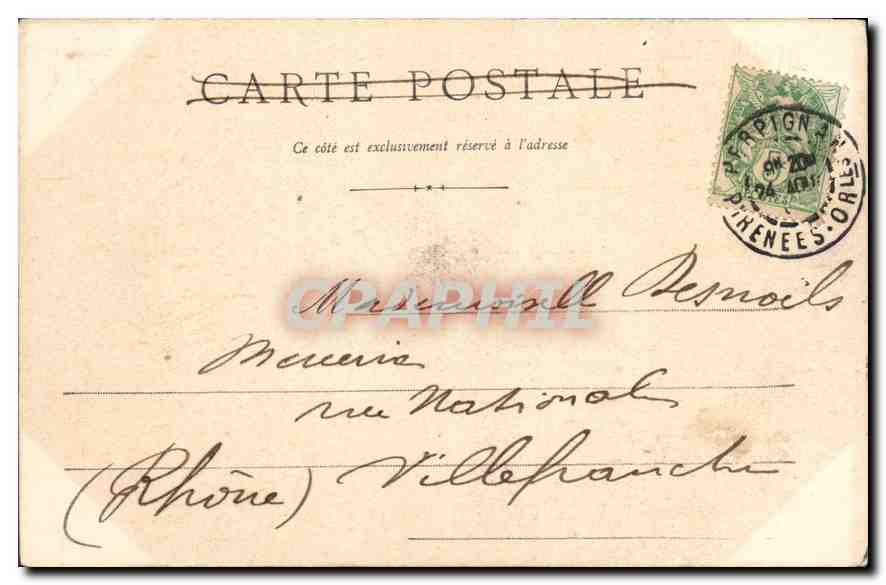 CARTE POSTALE
Ce côté est exclusivement réservé à l'adresse
PERPIGNAN
PYRENEES-ORLES
CPARPHIL
Mademoiselle Desnoils
Mercerie
rue Nationale
(Rhône) Villefranche